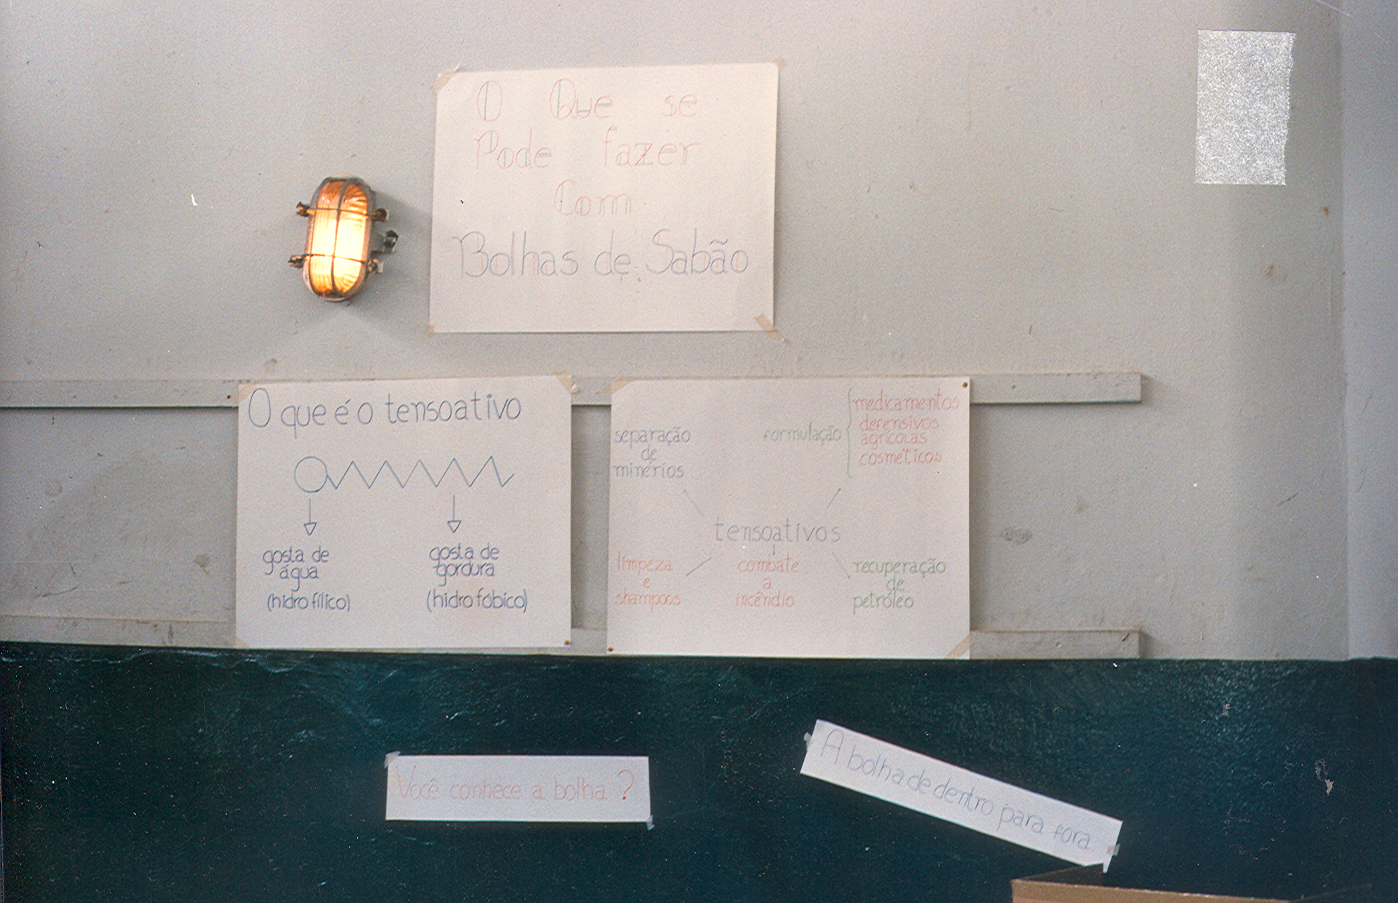 O Que se
Pode fazer
Com
Bolhas de Sabão
O que é o tensoativo
gosta de
água
(hidro fílico)
gosta de
gordura
(hidro fóbico)
separação
de
minérios
formulação
medicamentos
defensivos
agrícolas
cosméticos
tensoativos
limpeza
e
shampoos
combate
a
incêndio
recuperação
de
petróleo
Você conhece a bolha ?
A bolha de dentro para fora